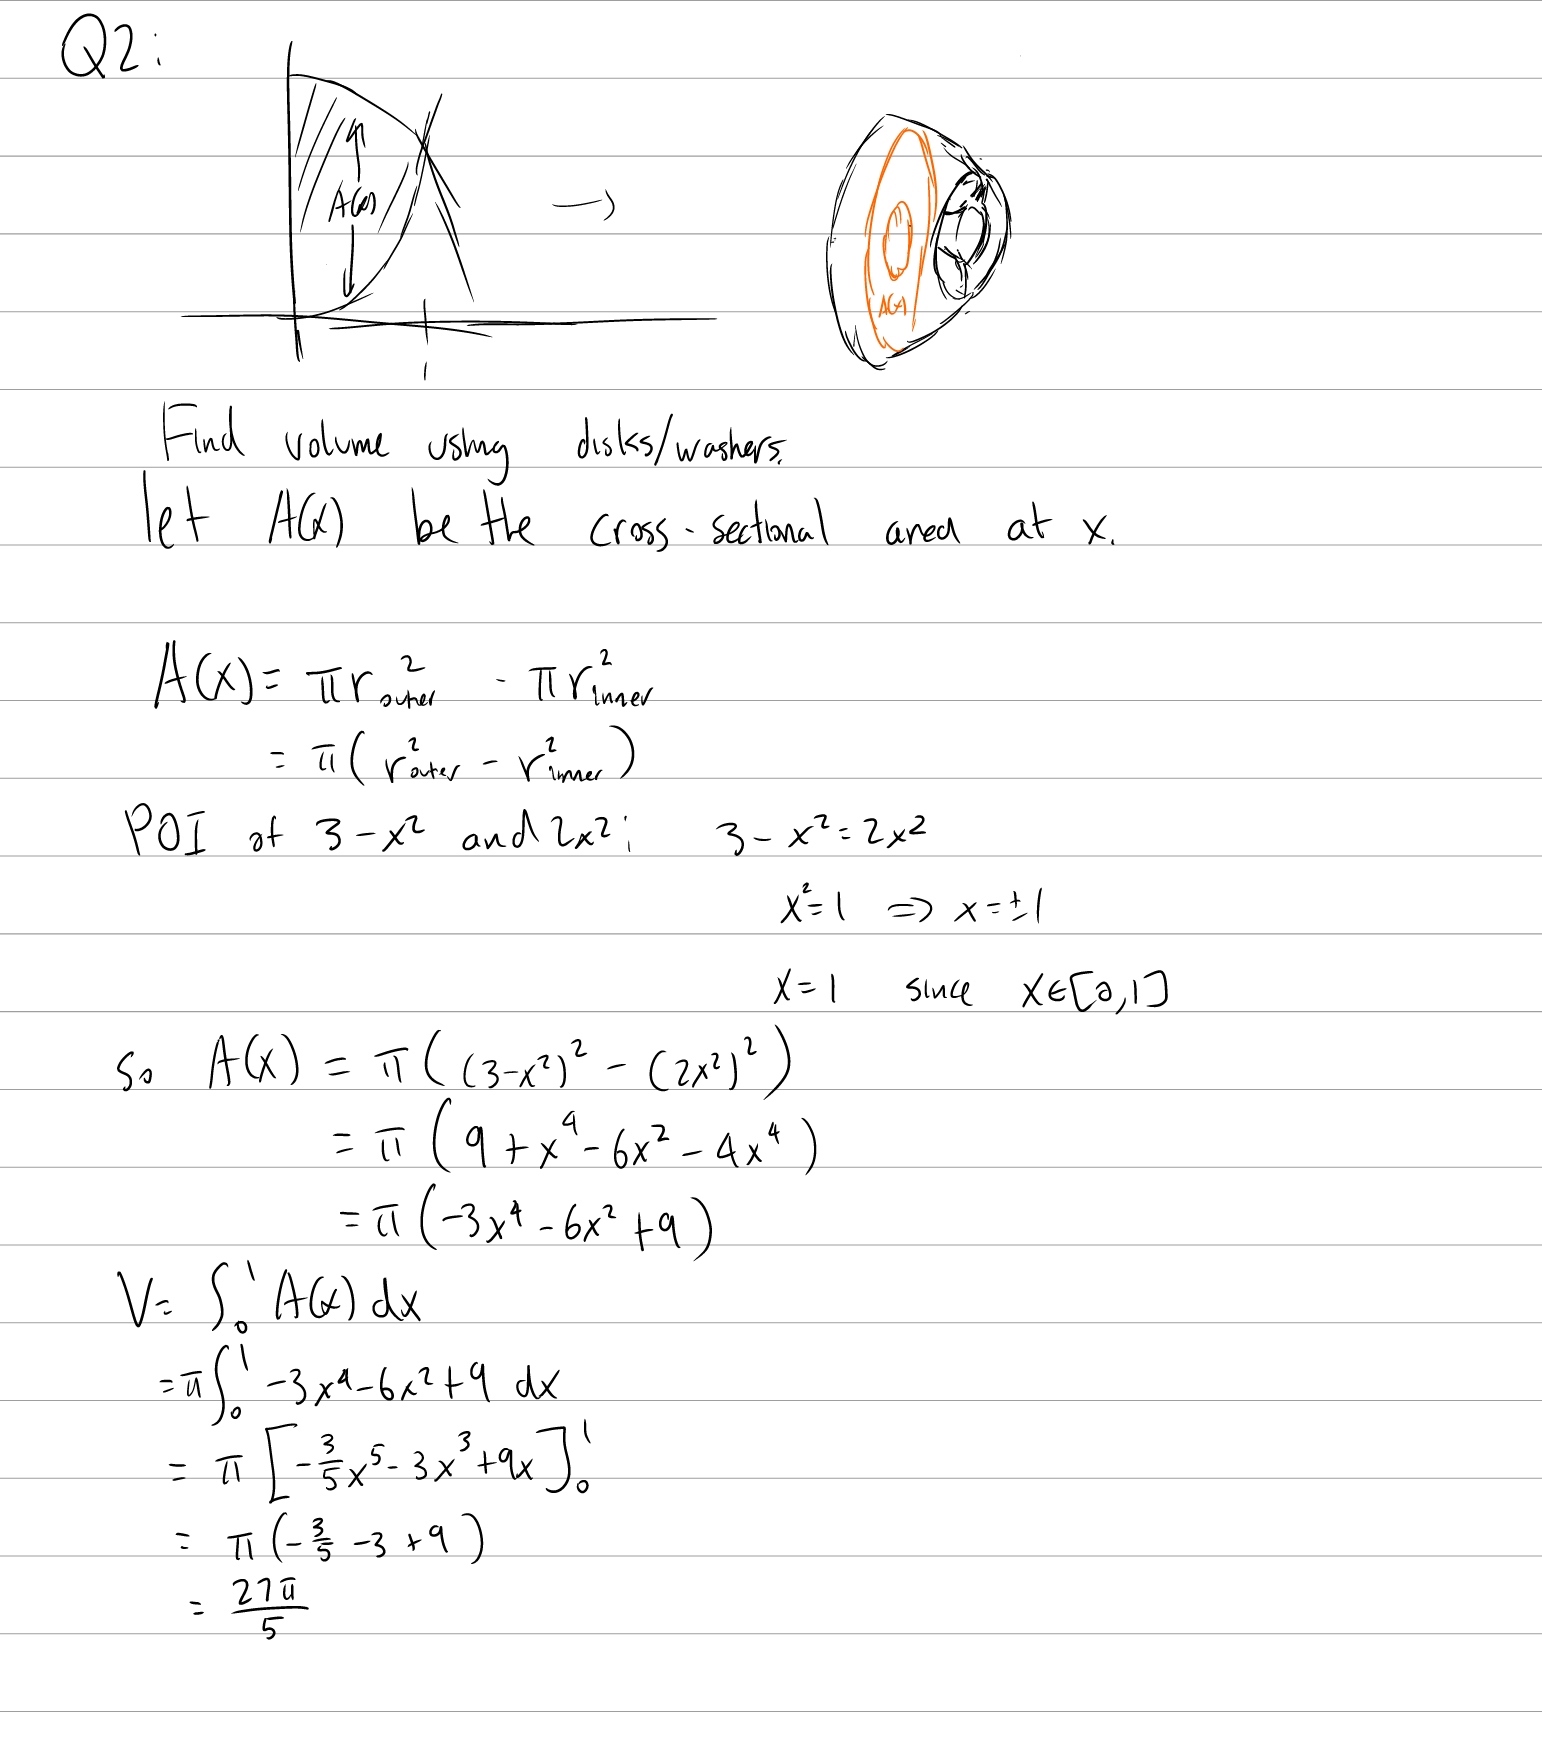 Q2:
A(x)
A(x)
1
Find volume using disks/washers.
let A(x) be the cross-sectional area at x.
A(x) = πr²outer - πr²inner
= π(r²outer - r²inner)
POI of 3-x² and 2x²: 3-x² = 2x²
x²=1 ⇒ x=±1
x=1 since x∈[0,1]
So A(x) = π((3-x²)² - (2x²)²)
= π(9+x⁴-6x²-4x⁴)
= π(-3x⁴-6x²+9)
V= ∫₀¹ A(x) dx
= π∫₀¹ -3x⁴-6x²+9 dx
= π[-3/5x⁵-3x³+9x]₀¹
= π(-3/5-3+9)
= 27π/5